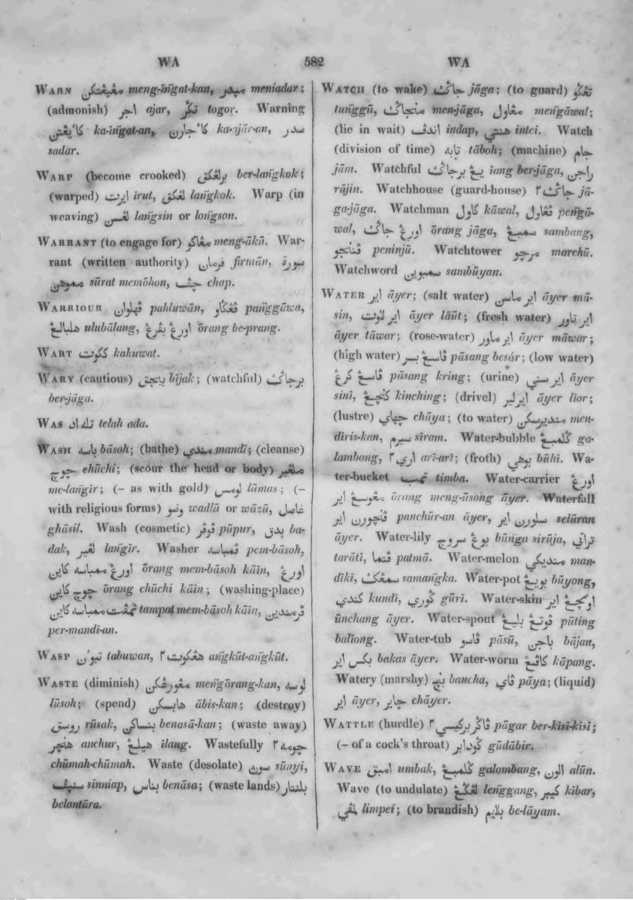 WA 582 WA
WARN meng-iñgat-kan, meniadar;
(admonish) اجر ajar, togor. Warning
ka-iñgat-an, ka-ajār-an,
sadar.
WARP (become crooked) برلڠكق ber-lañgkok;
(warped) ايرت irut, لڠكق lañgkok. Warp (in
weaving) لڠسن lañgsin or loñgson.
WARRANT (to engage for) مڠاكو meng-ākū. War-
rant (written authority) فرمان firmān, سورة
sūrat memōhon, چڤ chap.
WARRIOUR ڤهلوان pahluwān, pañggūwa,
هلبالڠ ulubālang, اورڠ بڤرڠ ōrang be-prang.
WART ككوت kakuwat.
WARY (cautious) بيجق bījak; (watchful) برجاݢ
ber-jāga.
WAS تله اد telah ada.
WASH باسه bāsoh; (bathe) مندي mandī; (cleanse)
چوچي chūchi; (scour the head or body)
me-lañgir; (– as with gold) lūmas; (–
with religious forms) وضو wadlū or wūzū,
ghāsil. Wash (cosmetic) ڤوڤر pūpur, بدق ba-
dak, لڠير lañgir. Washer ڤمباسه pem-bāsoh,
اورڠ ممباسه كاين ōrang mem-bāsoh kāin, اورڠ
چوچي كاين ōrang chūchi kāin; (washing-place)
تمڤت ممباسه كاين tampat mem-bāsoh kāin, ڤرمندين
per-mandī-an.
WASP تبوان tabuwan, añgkūt-añgkūt.
WASTE (diminish) meñgōrang-kan, لوسه
lūsoh; (spend) هابسكن ābis-kan; (destroy)
روسق rūsak, بناساكن benasā-kan; (waste away)
هنچر anchur, هيلڠ ilang. Wastefully
chūmah-chūmah. Waste (desolate) سوڽي sūnyi,
sinniap, بناس benāsa; (waste lands) بلنتار
belantāra.
WATCH (to wake) جاݢ jāga; (to guard) تڠݢو
tuñggū, منجاݢ men-jāga, مڠاول meñgāwal;
(lie in wait) اندڤ indap, هنتي intei. Watch
(division of time) تابه tāboh; (machine) جام
jām. Watchful يڠ برجاݢ iang ber-jāga, راجن
rājin. Watchhouse (guard-house) جاݢ٢ jā-
ga-jāga. Watchman كاول kāwal, ڤڠاول peñgā-
wal, اورڠ جاݢ ōrang jāga, سمبڠ sambang,
ڤننجو peninjū. Watchtower مرچو marchū.
Watchword سمبوين sambūyan.
WATER اير āyer; (salt water) اير ماسن āyer mā-
sin, اير لاوت āyer lāüt; (fresh water) اير تاور
āyer tāwar; (rose-water) اير ماور āyer māwar;
(high water) ڤاسڠ بسر pāsang besār; (low water)
ڤاسڠ كرڠ pāsang kring; (urine) اير سني āyer
sinī, كنچڠ kinching; (drivel) اير لير āyer līor;
(lustre) چهاي chāya; (to water) منديرسكن men-
dīris-kan, سيرم sīram. Water-bubble ݢلمبڠ ga-
lambong, اري٢ arī-arī; (froth) بوهي būhi. Wa-
ter-bucket تمب timba. Water-carrier اورڠ
مڠوسڠ اير ōrang meng-ūsong āyer. Waterfall
ڤنچورن اير panchūr-an āyer, سلورن اير selūran
āyer. Water-lily بوڠ سروج būnga sirūja, تراتي
tarāti, ڤتما patmā. Water-melon منديكي man-
dīki, سمڠك samañgka. Water-pot بويڠ būyong,
كندي kundi, ݢوري gūrī. Water-skin اونچڠ اير
ūnchang āyer. Water-spout ڤوتڠ بليڠ pūting
balīong. Water-tub ڤاسو pāsū, باجن bājan,
بكس اير bakas āyer. Water-worm كاڤڠ kāpang.
Watery (marshy) بنچه bancha, ڤاي pāya; (liquid)
اير āyer, چاير chāyer.
WATTLE (hurdle) ڤاݢر بركيسي٢ pāgar ber-kīsi-kīsi;
(– of a cock's throat) ݢودابر gūdābir.
WAVE امبق umbak, ݢلمبڠ galombang, الون alūn.
Wave (to undulate) لڠݢڠ leñggang, كيبر kībar,
limpei; (to brandish) بلايم be-lāyam.